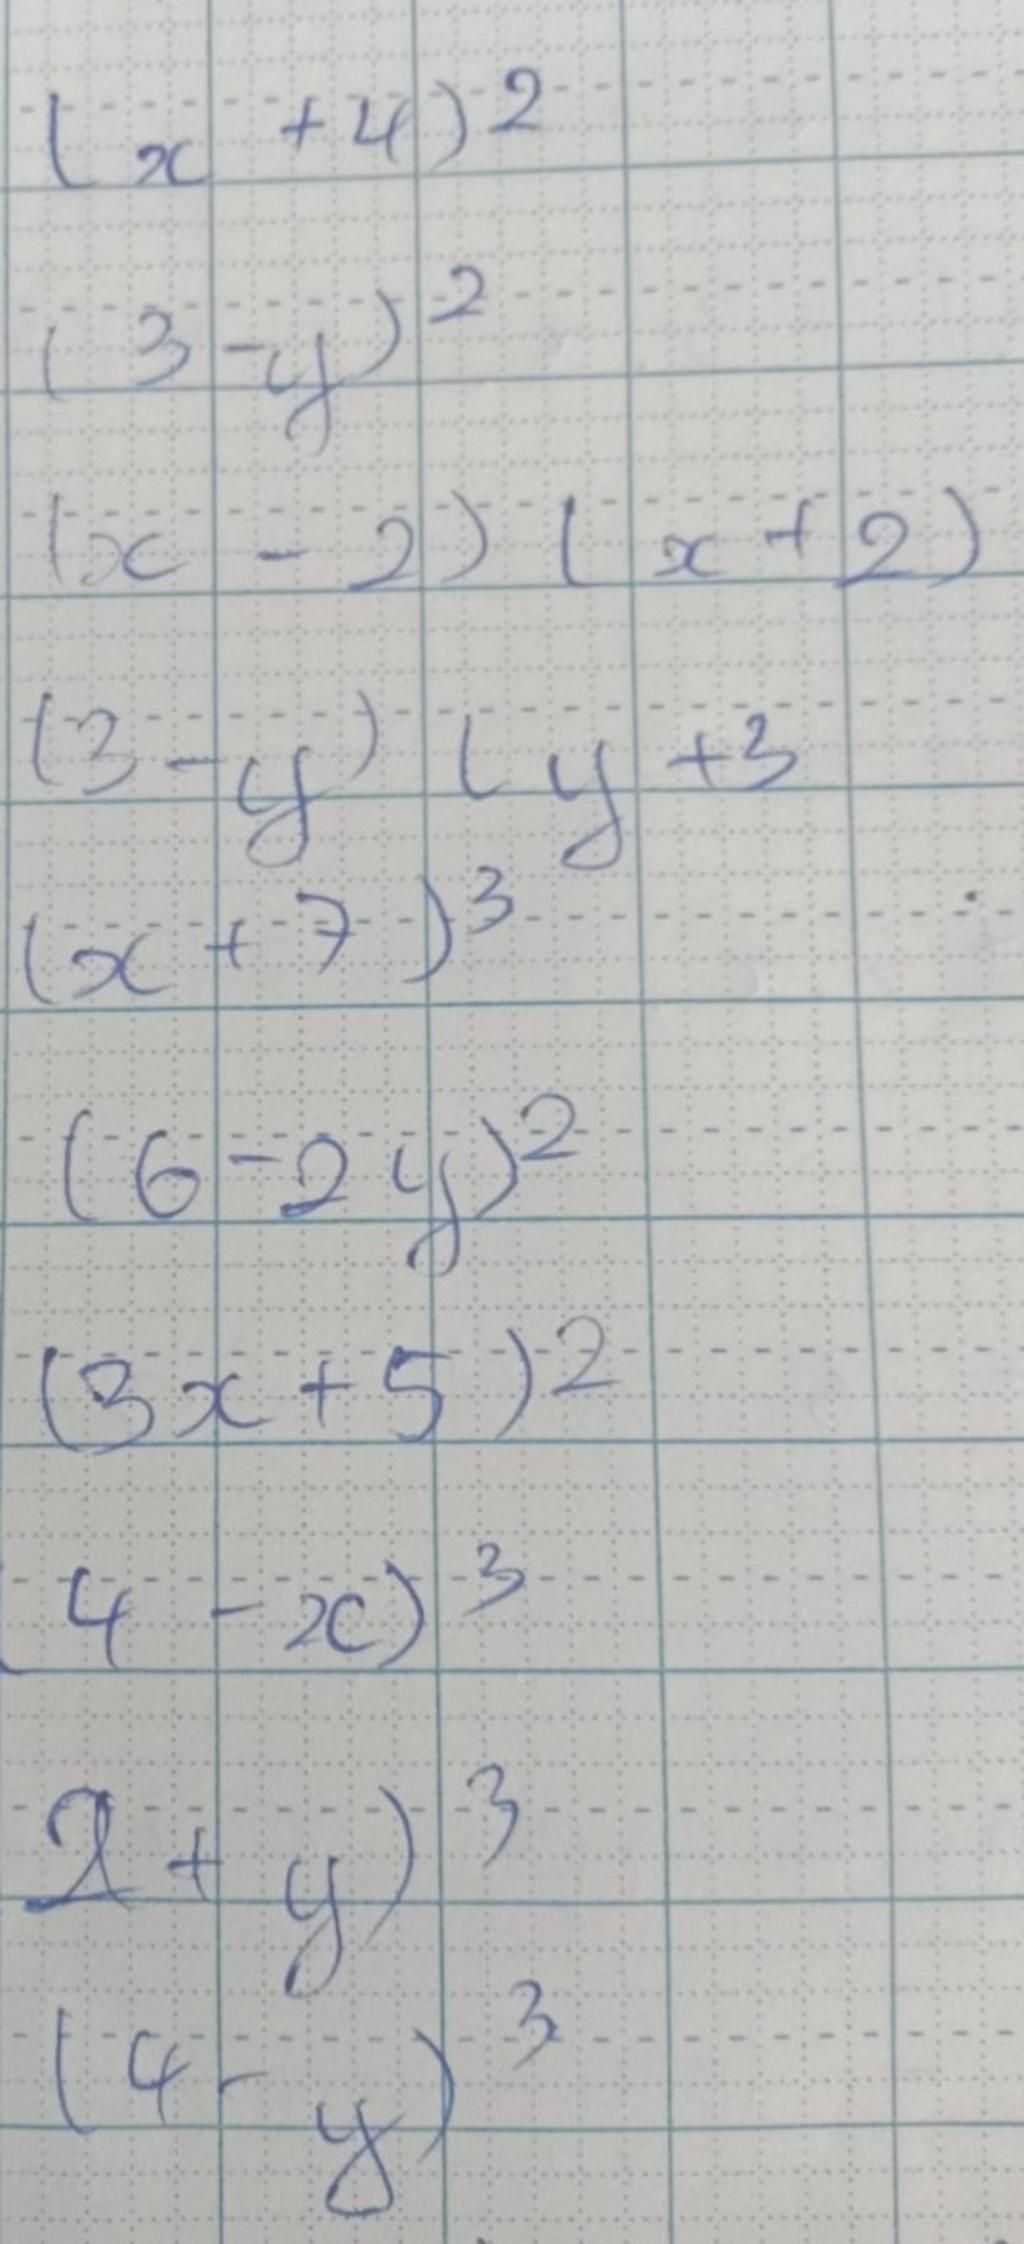 (x + 4)²
(3 - y)²
(x - 2) (x + 2)
(3 - y) (y + 3
(x + 7)³
(6 - 2y)²
(3x + 5)²
(4 - x)³
2 + y)³
(4 - y)³